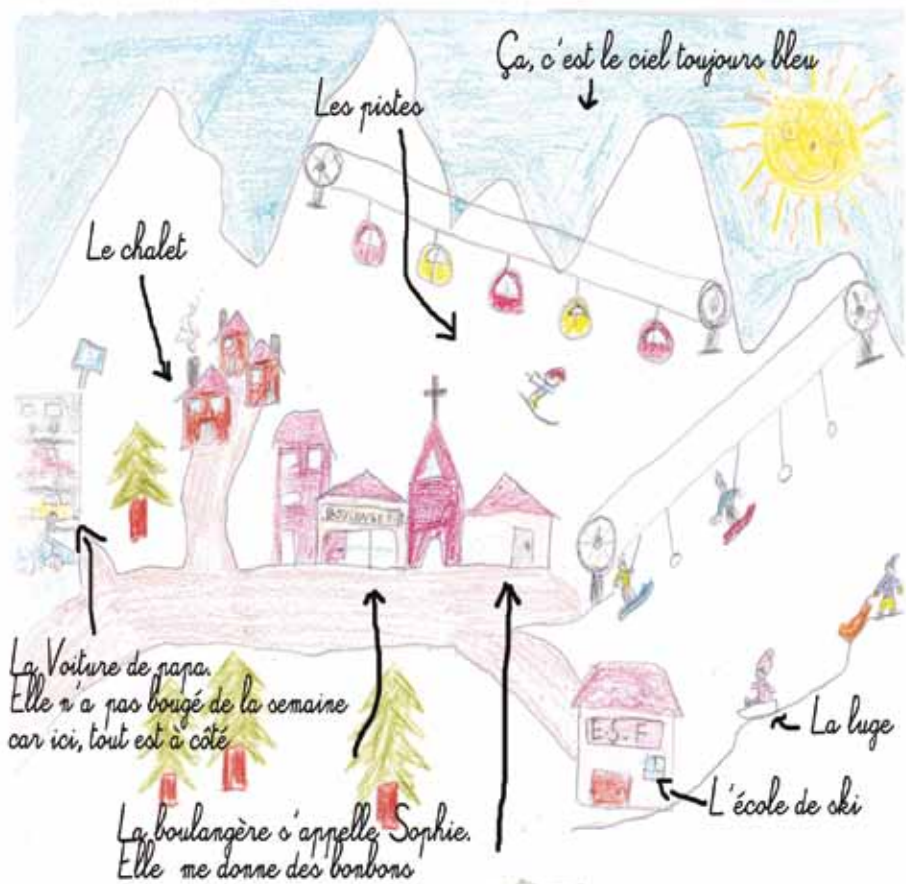 Ça, c'est le ciel toujours bleu
Les pistes
Le chalet
BOULANGE
La Voiture de papa.
Elle n'a pas bougé de la semaine
car ici, tout est à côté
E.S.F
La luge
L'école de ski
La boulangère s'appelle Sophie.
Elle me donne des bonbons